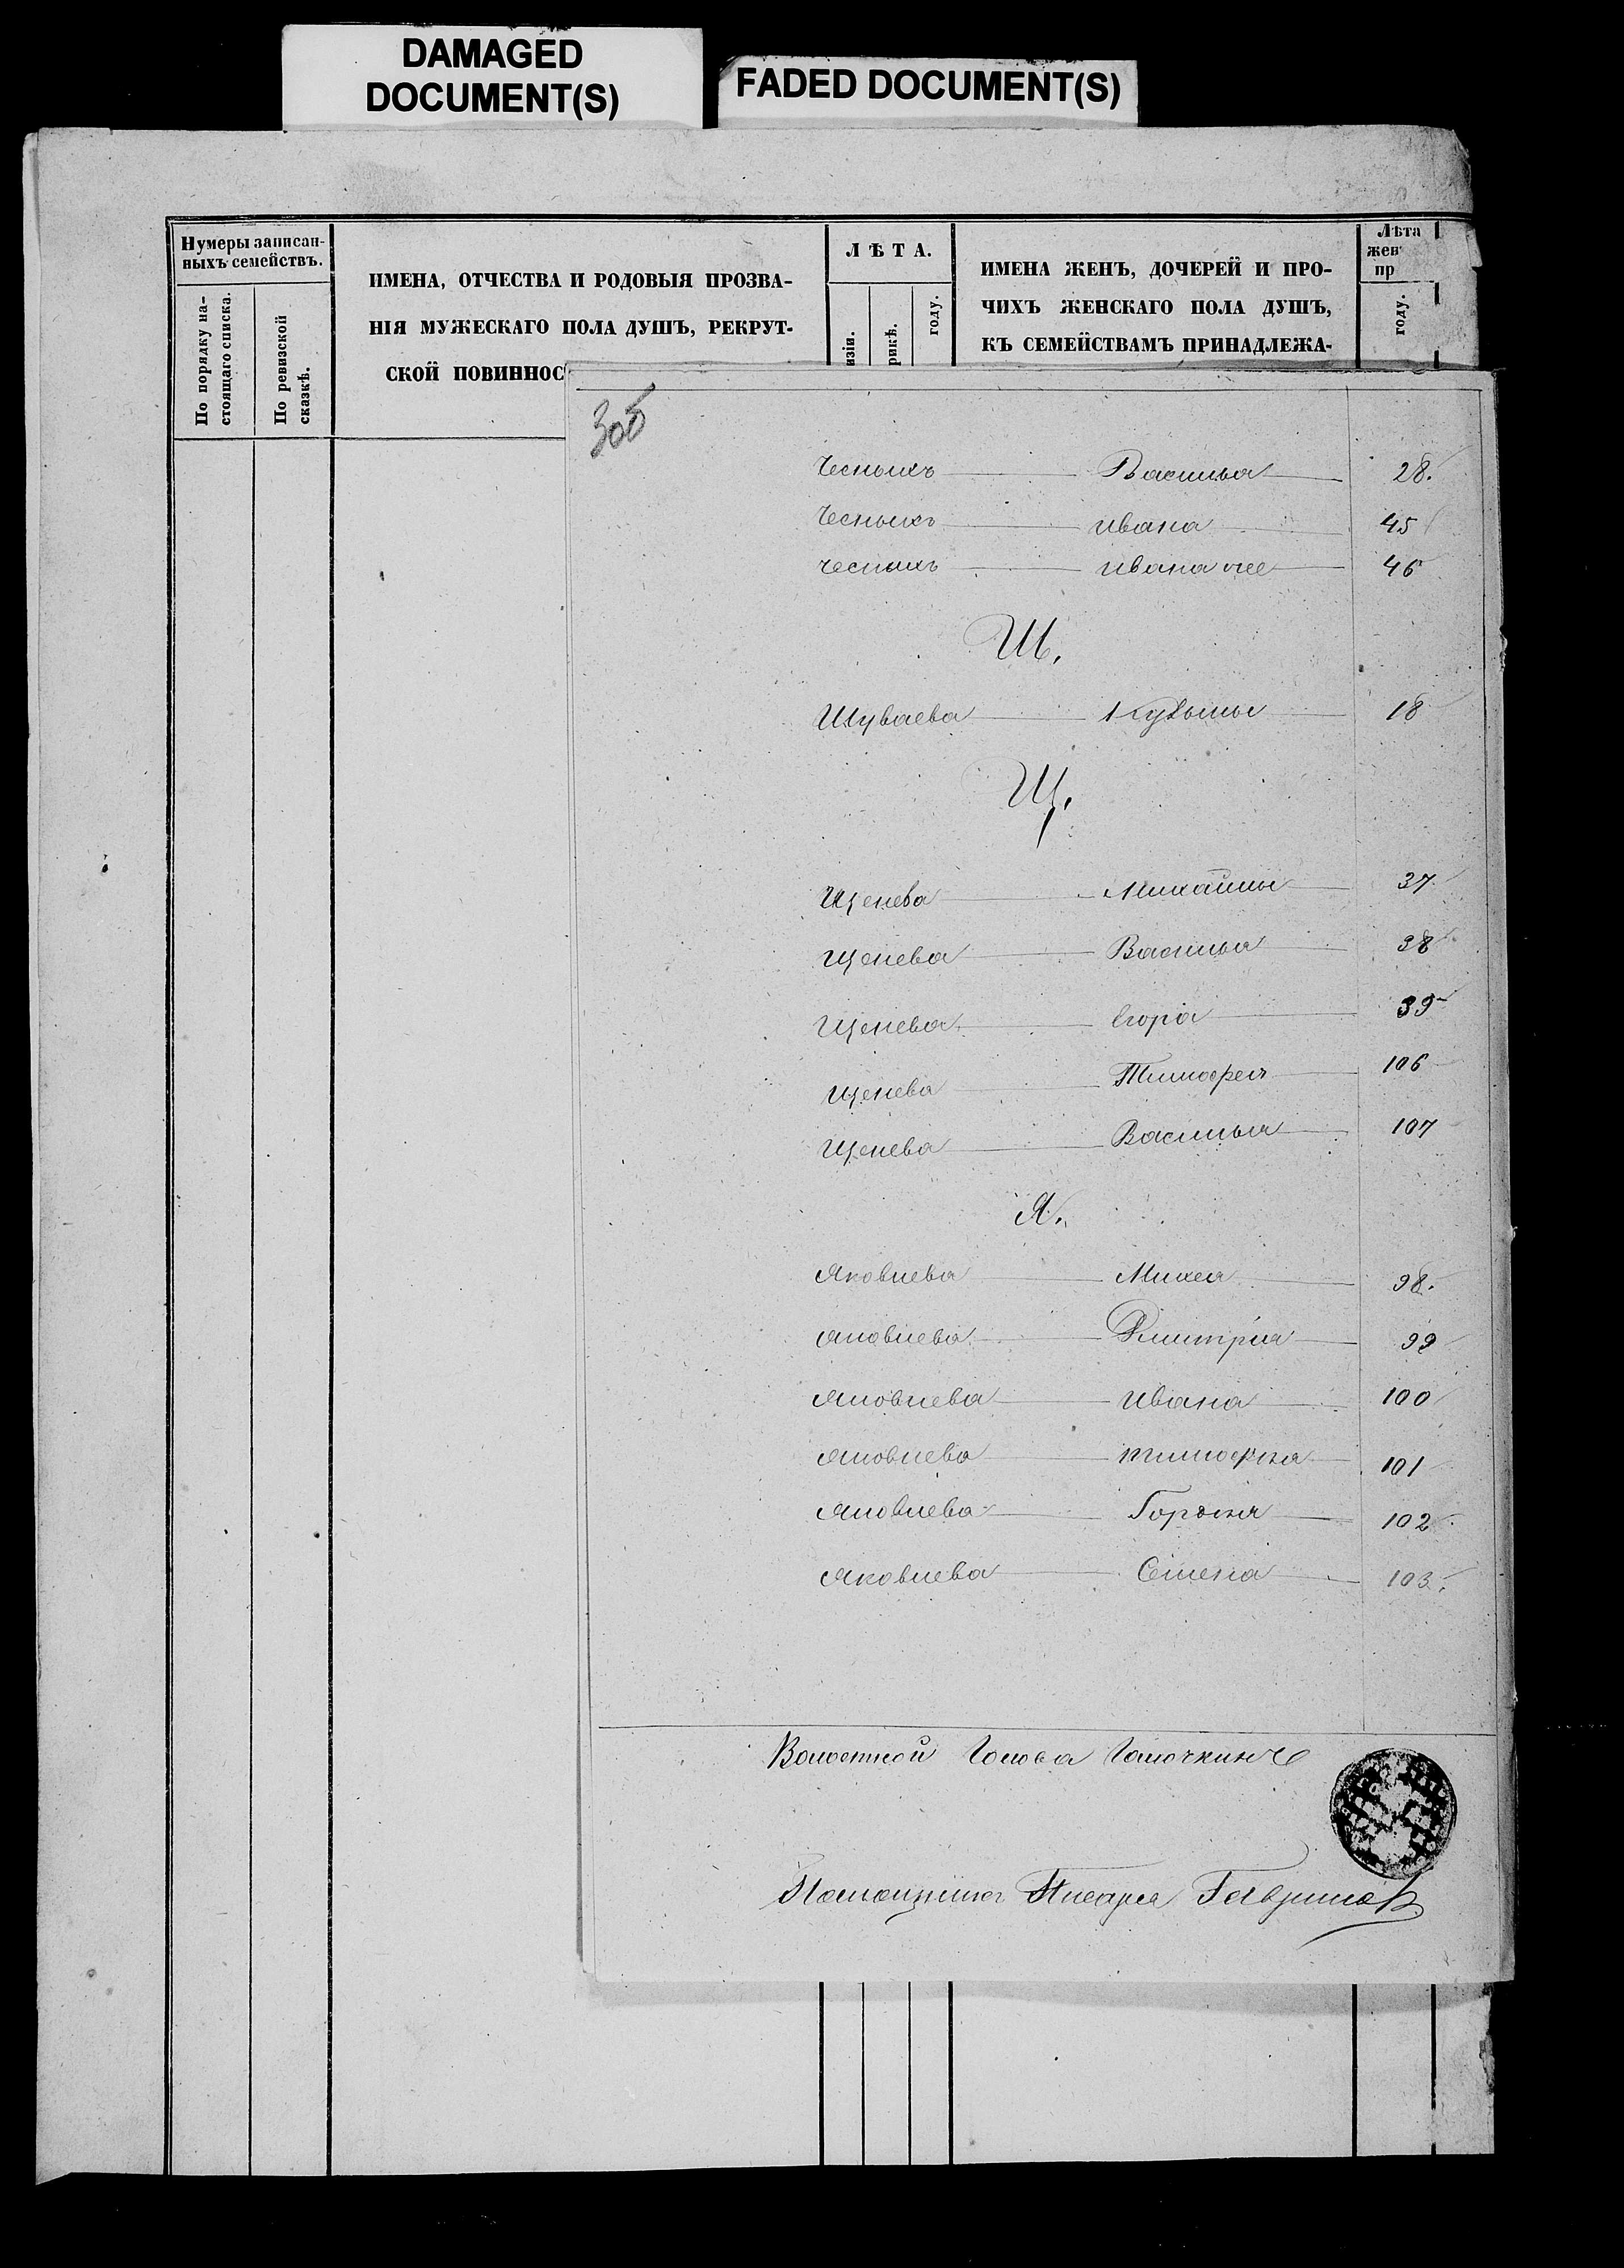 DAMAGED
DOCUMENT(S)
FADED DOCUMENT(S)
Нумеры записан-
ныхъ семействъ.
По порядку на-
стоящаго списка.
По ревизской
сказкѣ.
ИМЕНА, ОТЧЕСТВА И РОДОВЫЯ ПРОЗВА-
НІЯ МУЖЕСКАГО ПОЛА ДУШЪ, РЕКРУТ-
СКОЙ ПОВИННОС
ЛѢТА.
изіи.
рикѣ.
году.
ИМЕНА ЖЕНЪ, ДОЧЕРЕЙ И ПРО-
ЧИХЪ ЖЕНСКАГО ПОЛА ДУШЪ,
КЪ СЕМЕЙСТВАМЪ ПРИНАДЛЕЖА-
Лѣта
жен
пр
году.
Чесныхъ Василья 28.
Чесныхъ Ивана 45
Чесныхъ Ивана оее 46
Ш.
Шуваева Кузьмы 18
Щ.
Щенева Михайлы 37
Щенева Василья 38
Щенева Егора 39
Щенева Тимофея 106
Щенева Василья 107
Я.
Яковлева Михея 98.
Яковлева Дмитрия 99
Яковлева Ивана 100
Яковлева Тимофея 101
Яковлева Гордея 102
Яковлева Семена 103.
Волостной Голова
Помощникъ Писаря Гаврилов